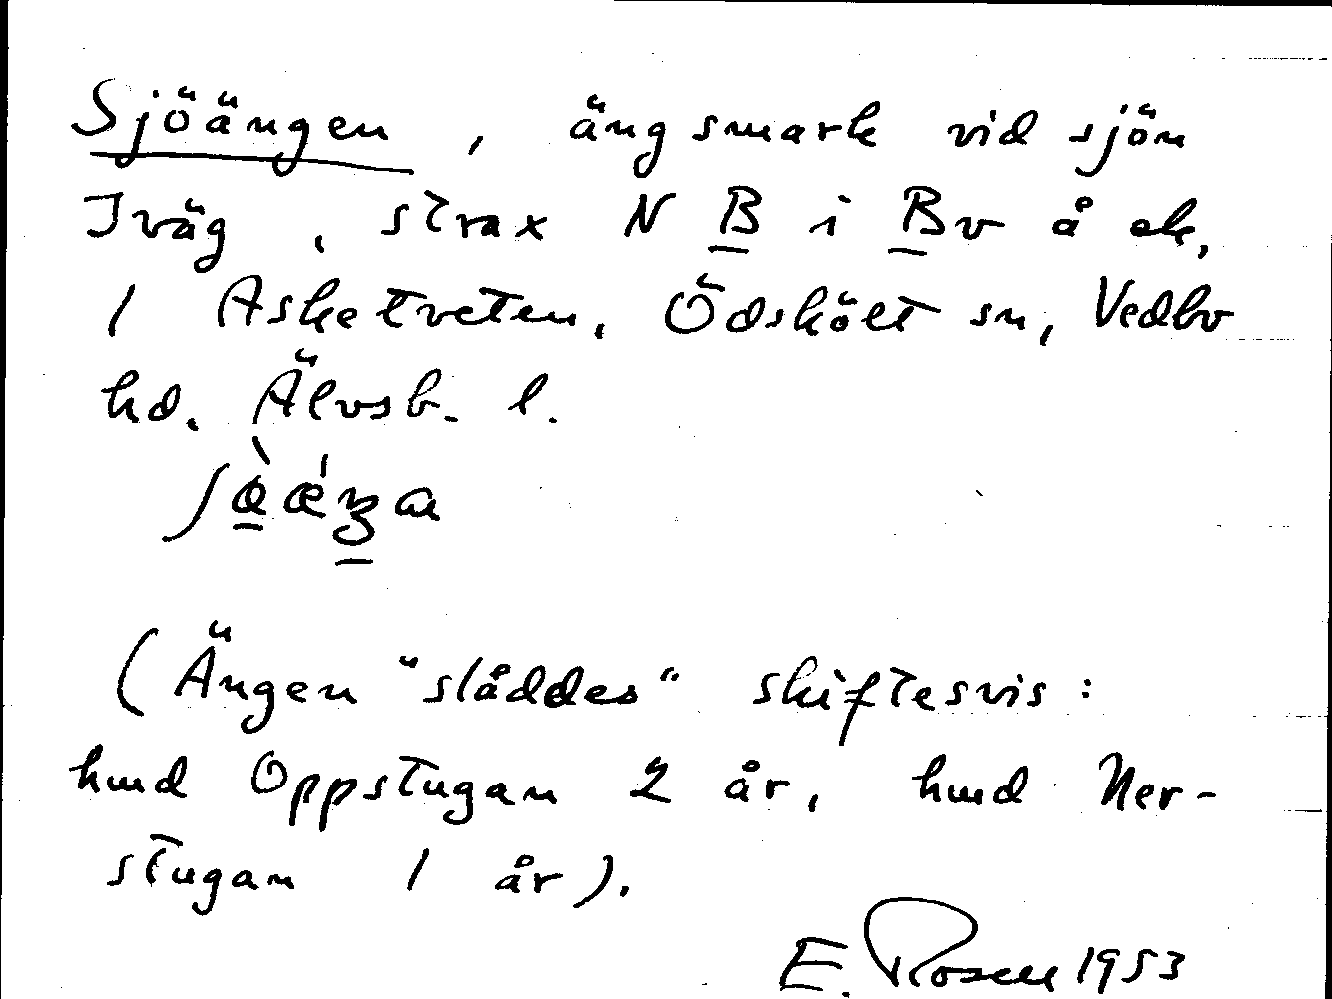 Sjöängen, ängsmark vid sjön
Iväg, strax N B i Bv å ek,
1 Asketveten, Ödskölt sn, Vedbo
hd. Älvsb. l.
(Ängen "slåddes" skiftesvis:
hmd Oppstugan 2 år, hmd Ner-
stugan 1 år).
E. Rosell 1953